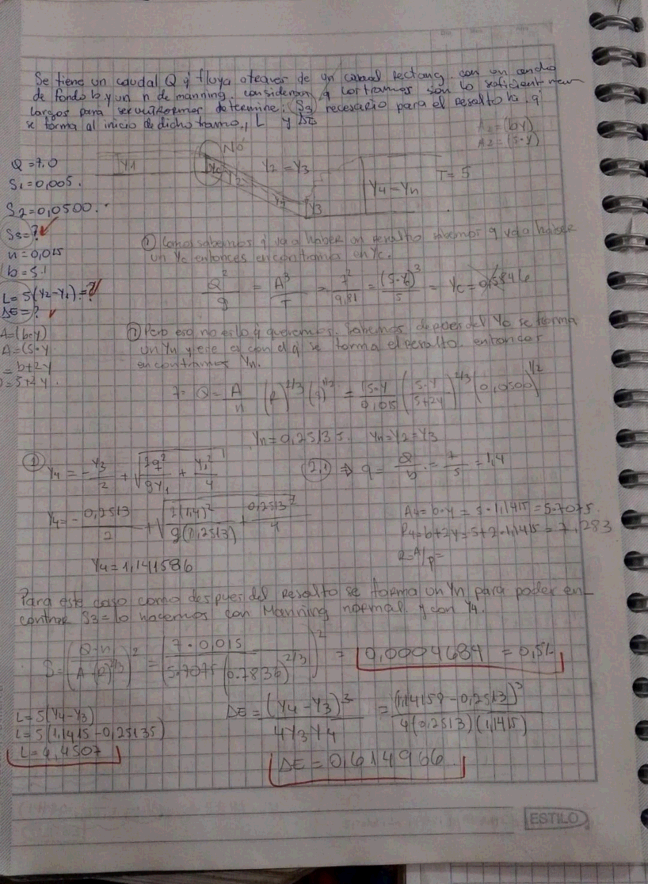 Se tiene un caudal Q y fluya a traves de un canal rectang. con un ancho
de fondo b y un n de manning, consideran q los tramos son lo suficientemen
largos para ser uniformes determine: (S3) necesario para el resalto h. q
se forma al inicio de dicho tramo, L y ΔE
A2=(5·Y)
Q=7.0
S1=0,005.
S2=0,0500.
S3=?
n=0,015
b=5.
L=5(Y2-Y1)=?
ΔE=?
A=(b·Y)
A=(5·Y
=b+2Y
=5+2Y.
Y1
NC
Y2=Y3
Y3
Y4=Yn
T=5
① Como sabemos q va a haber un resalto
un Yc entonces encontramos un Yc.
Q²/g = A³/T = 7²/9,81 = (5·Y)³/5 = Yc=0,5846
② Pero eso no es lo q queremos, sabemos despues del Yc se forma
un Yn y ese q con el q se forma el resalto. entonces
encontramos Yn.
7=Q=A/n (R)^2/3 (S)^1/2 = (5·Y)/0,015 (5·Y/5+2Y)^2/3 (0,0500)^1/2
Yn=0,25135 Yn=Y2=Y3
Y4=-Y3/2+√(2q²/gY1+Y1²/4)
2,1 ⇒ q=Q/b=7/5=1,4
Y4=-0,2513/2+√(2(1,4)²/g(0,2513)+0,2513²/4)
A4=b·Y=5·1,1415=5.7075.
P4=b+2Y=5+2·1,1415=7,283
R=A/P=
Y4=1,141586
Para este caso como despues del resalto se forma un Yn para poder en-
contrar S3=lo hacemos con Manning normal y con Y4.
S=(Q·n/A·(R)^2/3)²=(7·0,015/5.7075(0.7836)^2/3)²=0,0004684=0,5‰
L=5(Y4-Y3)
L=5(1,1415-0,25135)
L=4,4507
ΔE=(Y4-Y3)³/4Y3Y4=(1,14159-0,2513)³/4(0,2513)(1,1415)
ΔE=0,614966
ESTILO